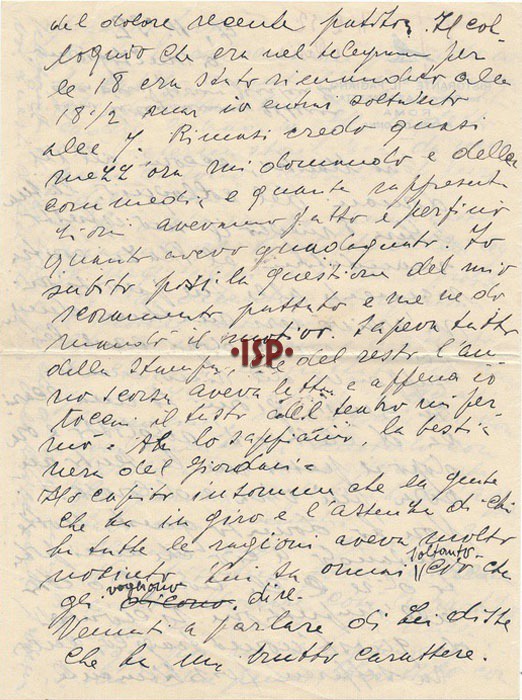 del dolore recente patito. Il col-
loquio che era nel telegramma per
le 18 era stato rimandato alle
18 1/2 ma io entrai soltanto
alle 7. Rimasi credo quasi
mezz'ora mi domandò e della
commedia e quante rappresenta
zioni avevamo fatto e perfino
quanto avevo guadagnato. Io
subito posi la questione del mio
scoramento passato e me ne do
mandò il motivo. Sapeva tutto
della stampa, e del resto l'an-
no scorso aveva letto e appena io
toccai il tasto del teatro mi fer-
mò = Ah lo sappiamo, la bestia
nera del Giordani =
Ho capito insomma che la gente
che ha in giro e l'assenza di chi
ha tutte le ragioni aveva molto
nociuto. Lui sa ormai soltanto ciò che
gli dicono. vogliono dire.
Venuti a parlare di Lei disse
che ha un brutto carattere.
ISP